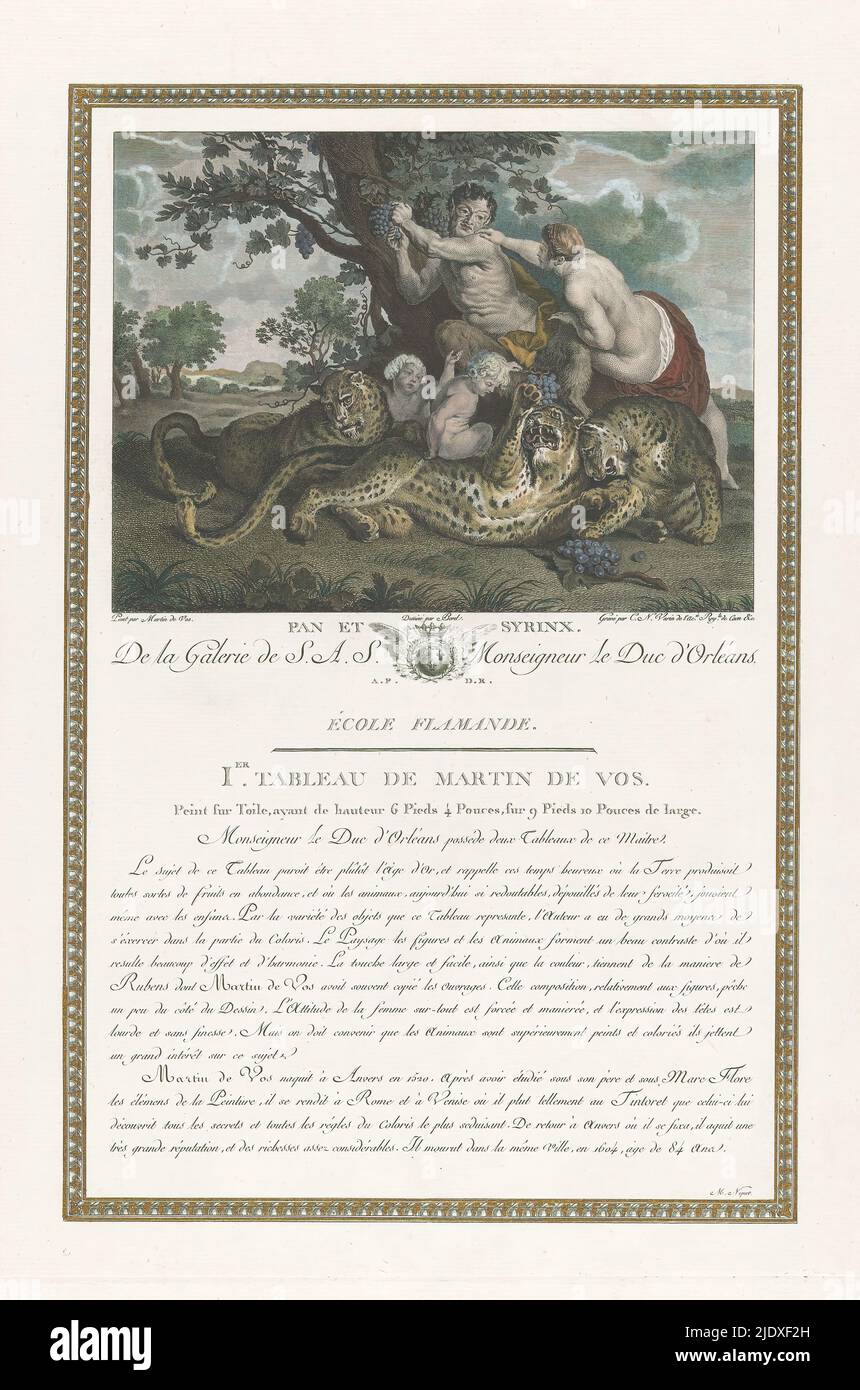 Peint par Martin de Vos.
Dessiné par Borel.
Gravé par C. N. Varin de l'Ac. de Caen &c
PAN ET SYRINX.
De la Galerie de S. A. S. Monseigneur le Duc d'Orléans.
A. P. D. R.
ÉCOLE FLAMANDE.
I.ER TABLEAU DE MARTIN DE VOS.
Peint sur Toile, ayant de hauteur 6 Pieds ¼ Pouces, sur 9 Pieds 10 Pouces de large.
Monseigneur le Duc d'Orléans possède deux Tableaux de ce Maitre.
Le sujet de ce Tableau paroit être plutôt l'âge d'Or, et rappelle ces temps heureux où la Terre produisoit
toutes sortes de fruits en abondance, et où les animaux, aujourd'hui si redoutables, dépouillés de leur férocité, jouoient
même avec les enfans. Par la variété des objets que ce Tableau represante, l'Auteur a eu de grands moyens de
s'éxercer dans la partie du Coloris. Le Paysage les figures et les Animaux forment un beau contraste d'où il
resulte beaucoup d'effet et d'harmonie. La touche large et facile, ainsi que la couleur, tiennent de la maniere de
Rubens dont Martin de Vos avoit souvent copié les Ouvrages. Cette composition, relativement aux figures, pèche
un peu du côté du Dessin. L'Attitude de la femme sur-tout est forcée et manierée, et l'expression des têtes est
lourde et sans finesse. Mais on doit convenir que les Animaux sont supérieurement peints et coloriés ils jettent
un grand intérêt sur ce sujet.
Martin de Vos naquit à Anvers en 1520. Après avoir étudié sous son père et sous Marc Flore
les élémens de la Peinture, il se rendit à Rome et à Venise où il plut tellement au Tintoret que celui-ci lui
découvrit tous les secrets et toutes les régles du Coloris le plus séduisant. De retour à Anvers où il se fixa, il aquit une
très grande réputation, et des richesses assez considérables. Il mourut dans la même Ville, en 1604, age de 84 Ans.
alamy
Image ID: 2JDXF2H
www.alamy.com